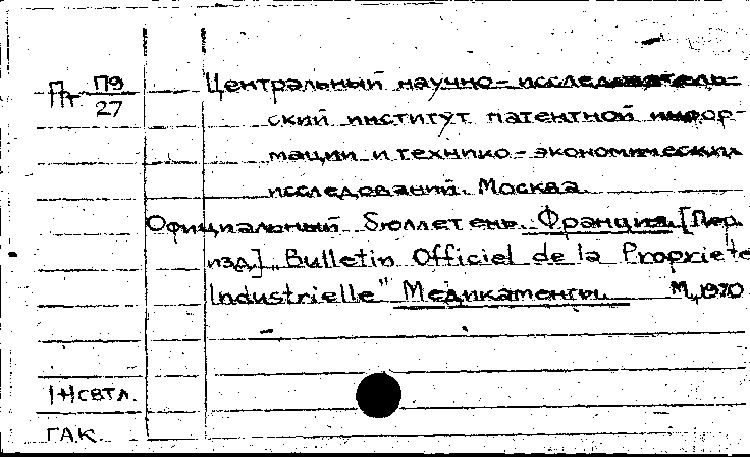 Пт П9/27
Центральный научно-исследователь-
ский институт патентной инфор-
мации и технико-экономических
исследований. Москва
Официальный бюллетень. Франция. [Пер.
изд.] „Bulletin Officiel de la Propriete
Industrielle" Медикаменты. М., 1970
1+1 свтл.
ГАК.